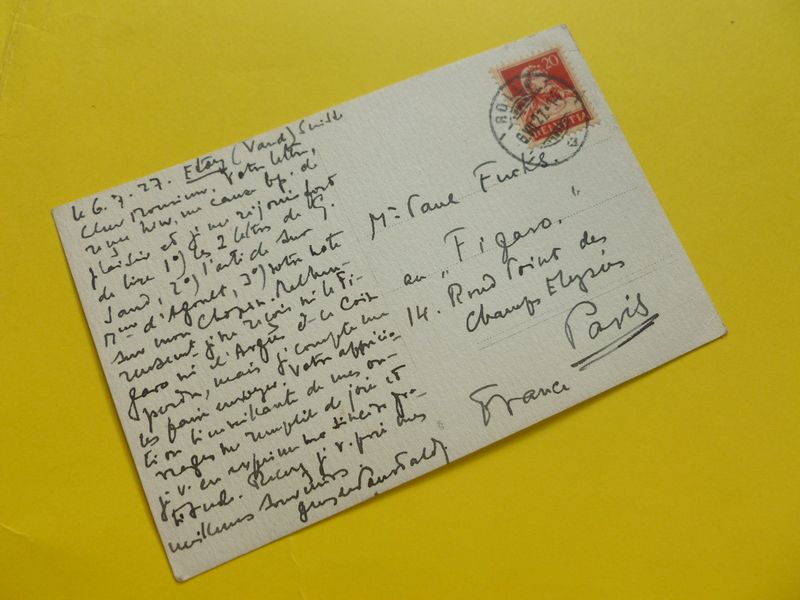 le 6.7.27. Etoy (Vaud) Suisse
Cher Monsieur. Votre lettre,
reçue hier, me cause bp. de
plaisir et j'me réjouis fort
de lire 1°) les 2 lettres de G.
Sand, 2°) l'article sur
Mme d'Agoult, 3°) votre note
sur mon Chopin. Malheu-
reusement j'ne reçois ni le Fi-
garo ni l'Argus ce coin
perdu, mais j'compte me
les faire envoyer. Votre apprécia-
tion bienveillante de mes ou-
vrages me remplit de joie et
j'v. en exprime ma sincère gra-
titude. Recevez j'v. prie mes
meilleurs souvenirs
Guy de Pourtalès
20
HELVETIA
Mr Paul Fuchs.
au „Figaro.“
14. Rond Point des
Champs Elysées
Paris
France